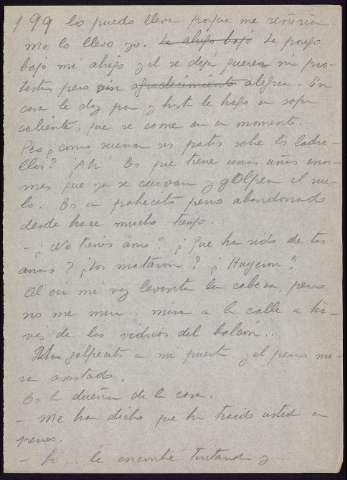 199 lo puedo llevar porque me reñirían
mo lo llevo yo. Le abrigo bajo Le pongo
bajo mi abrigo y él se deja querer sin pro-
testas pero sin agradecimiento alegria. En
casa le doy pan y hasta le hago una sopa
caliente, que se come en un momento.
Pero ¿como suenan sus patas sobre los ladri-
llos? ¡Ah! Es que tiene unas uñas enor-
mes que ya se curvan y golpean el sue-
lo. Es un pobrecito perro abandonado
desde hace mucho tiempo.
- ¿No tienes amo? ¿Que ha sido de tus
amos? ¿Los mataron? ¿Huyeron?
Al oir mi voz levanta la cabeza, pero
no me mira, mira a la calle a tra-
ves de los vidrios del balcón...
golpeado a mi puerta y el perro me
mira asustado.
Es la dueña de la casa.
- Me han dicho que ha traido usted un
perro.
- Si... le encontré tiritando y...